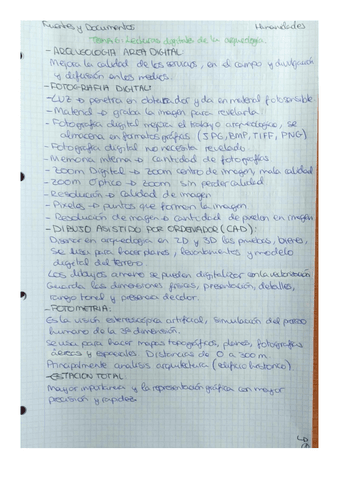 Fuentes y Documentos Humanidades
Tema 6: Lecturas digitales de la arqueología.
- ARQUEOLOGIA AREA DIGITAL:
Mejora la calidad de los servicios, en el campo y divulgación
y difusión en los medios.
- FOTOGRAFIA DIGITAL:
- LUZ → penetra en obturador y da en material fotosensible
- Material → graba la imagen para revelarla.
- Fotografia digital mejora el trabajo arqueologico, se
almacena en formatos gráficas (JPG, BMP, TIFF, PNG)
- Fotografia digital no necesita revelado.
- Memoria interna → cantidad de fotografías
- Zoom Digital → zoom centro de imagen, mala calidad
- Zoom Óptico → zoom sin perder calidad
- Resolución → calidad de imagen
- Pixeles → puntos que forman la imagen
- Resolución de imagen → cantidad de pixeles en imagen
- DIBUJO ASISTIDO POR ORDENADOR (CAD):
Disenar en arqueologia en 2D y 3D las pruebas,
Se usa para hacer planos, y modelo
digital del terreno
Los dibujos a mano se pueden digitalizar con la vectorización
Guarda las dimensiones fisicas, presentación, detalles,
rango tonal y presencia de color.
- FOTOMETRIA:
Es la visión estereoscópica artificial, simulación del proceso
humano de la 3ª dimensión.
Se usa para hacer mapas topográficos, planos, fotografias
aéreas y espaciales. Distancias de 0 a 300 m.
Principalmente analisis arquitectura (edificio historico)
- ESTACION TOTAL
Mayor importancia y la representación gráfica con mayor
precisión y rapidez.